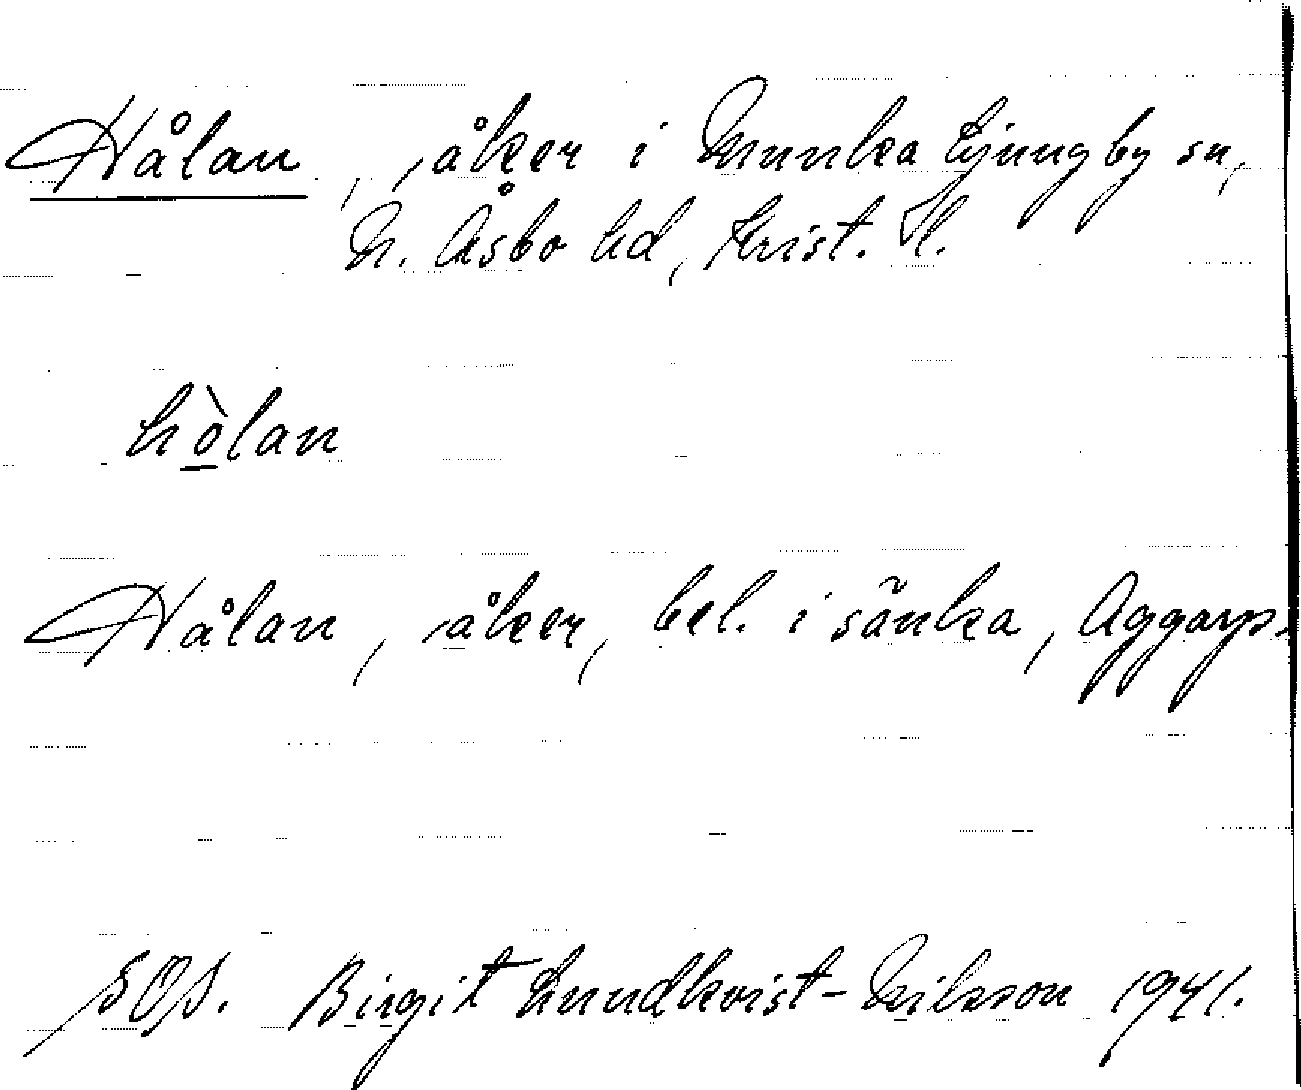 Hålan, åker i Munka Ljungby sn,
N. Åsbo hd, Krist. l.
hòlan
Hålan, åker, bel. i sänka, Aggarp.
Birgit Lundkvist-Nilsson 1941.